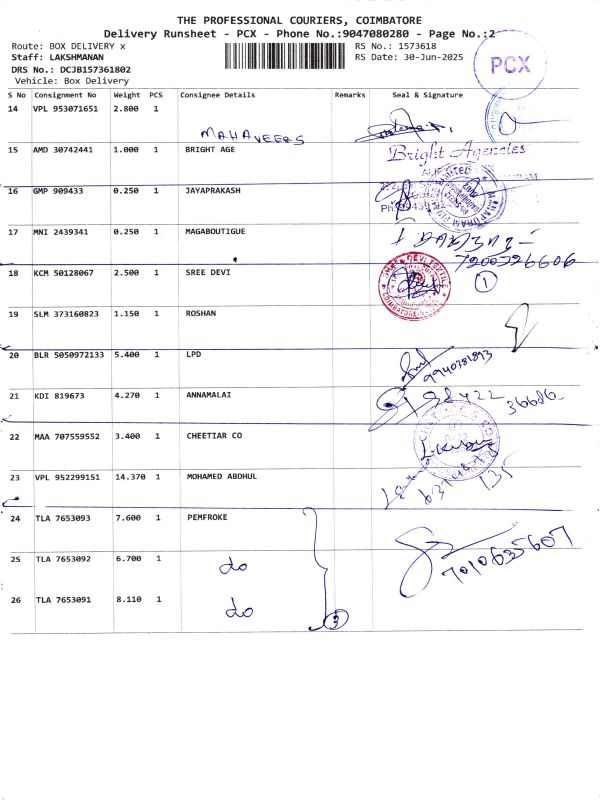 THE PROFESSIONAL COURIERS, COIMBATORE
Delivery Runsheet - PCX - Phone No.:9047080280 - Page No.:2
Route: BOX DELIVERY x
RS No.: 1573618
Staff: LAKSHMANAN
RS Date: 30-Jun-2025
DRS No.: DCJB157361802
Vehicle: Box Delivery
PCX
S No Consignment No Weight PCS Consignee Details Remarks Seal & Signature
14 VPL 953071651 2.800 1
MAHAVEERS
15 AMD 30742441 1.000 1 BRIGHT AGE
Bright Agencies
16 GMP 909433 0.250 1 JAYAPRAKASH
17 MNI 2439341 0.250 1 MAGABOUTIQUE
7200726606
18 KCM 50128067 2.500 1 SREE DEVI
1
19 SLM 373160823 1.150 1 ROSHAN
20 BLR 5050972133 5.400 1 LPD
9940381893
21 KDI 819673 4.270 1 ANNAMALAI
98422 36686
22 MAA 707559552 3.400 1 CHEETIAR CO
23 VPL 952299151 14.370 1 MOHAMED ABDHUL
135
24 TLA 7653093 7.600 1 PEMFROKE
7010635607
25 TLA 7653092 6.700 1 do
26 TLA 7653091 8.110 1 do
3